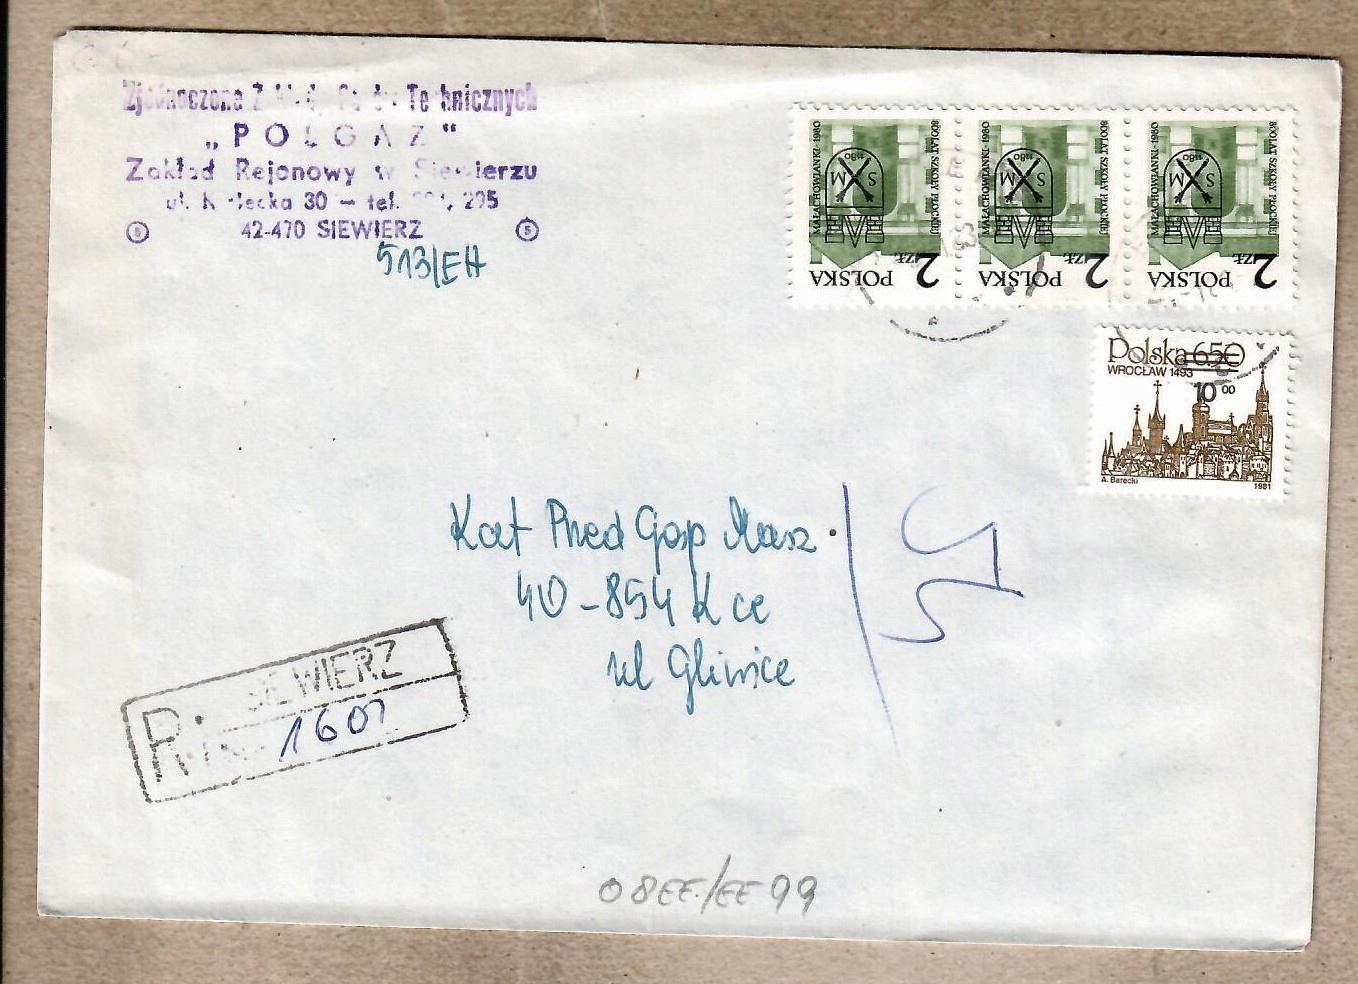 Technicznych
„POLGAZ"
Zakład Rejonowy w Siewierzu
ul. 30 — tel. 295
42-470 SIEWIERZ
513/EH
MAŁACHOWIANKI - 1980
800 LAT SZKOŁY PŁOCKIEJ
1180
S M
POLSKA 2 ZŁ
MAŁACHOWIANKI - 1980
800 LAT SZKOŁY PŁOCKIEJ
1180
S M
POLSKA 2 ZŁ
MAŁACHOWIANKI - 1980
800 LAT SZKOŁY PŁOCKIEJ
1180
S M
POLSKA 2 ZŁ
Polska 650
WROCŁAW 1493
10 00
A. Barecki 1981
Kat Przed Gosp Masz
40-854 K ce
ul Gliwice
R SIEWIERZ
1601
08EE/EE99